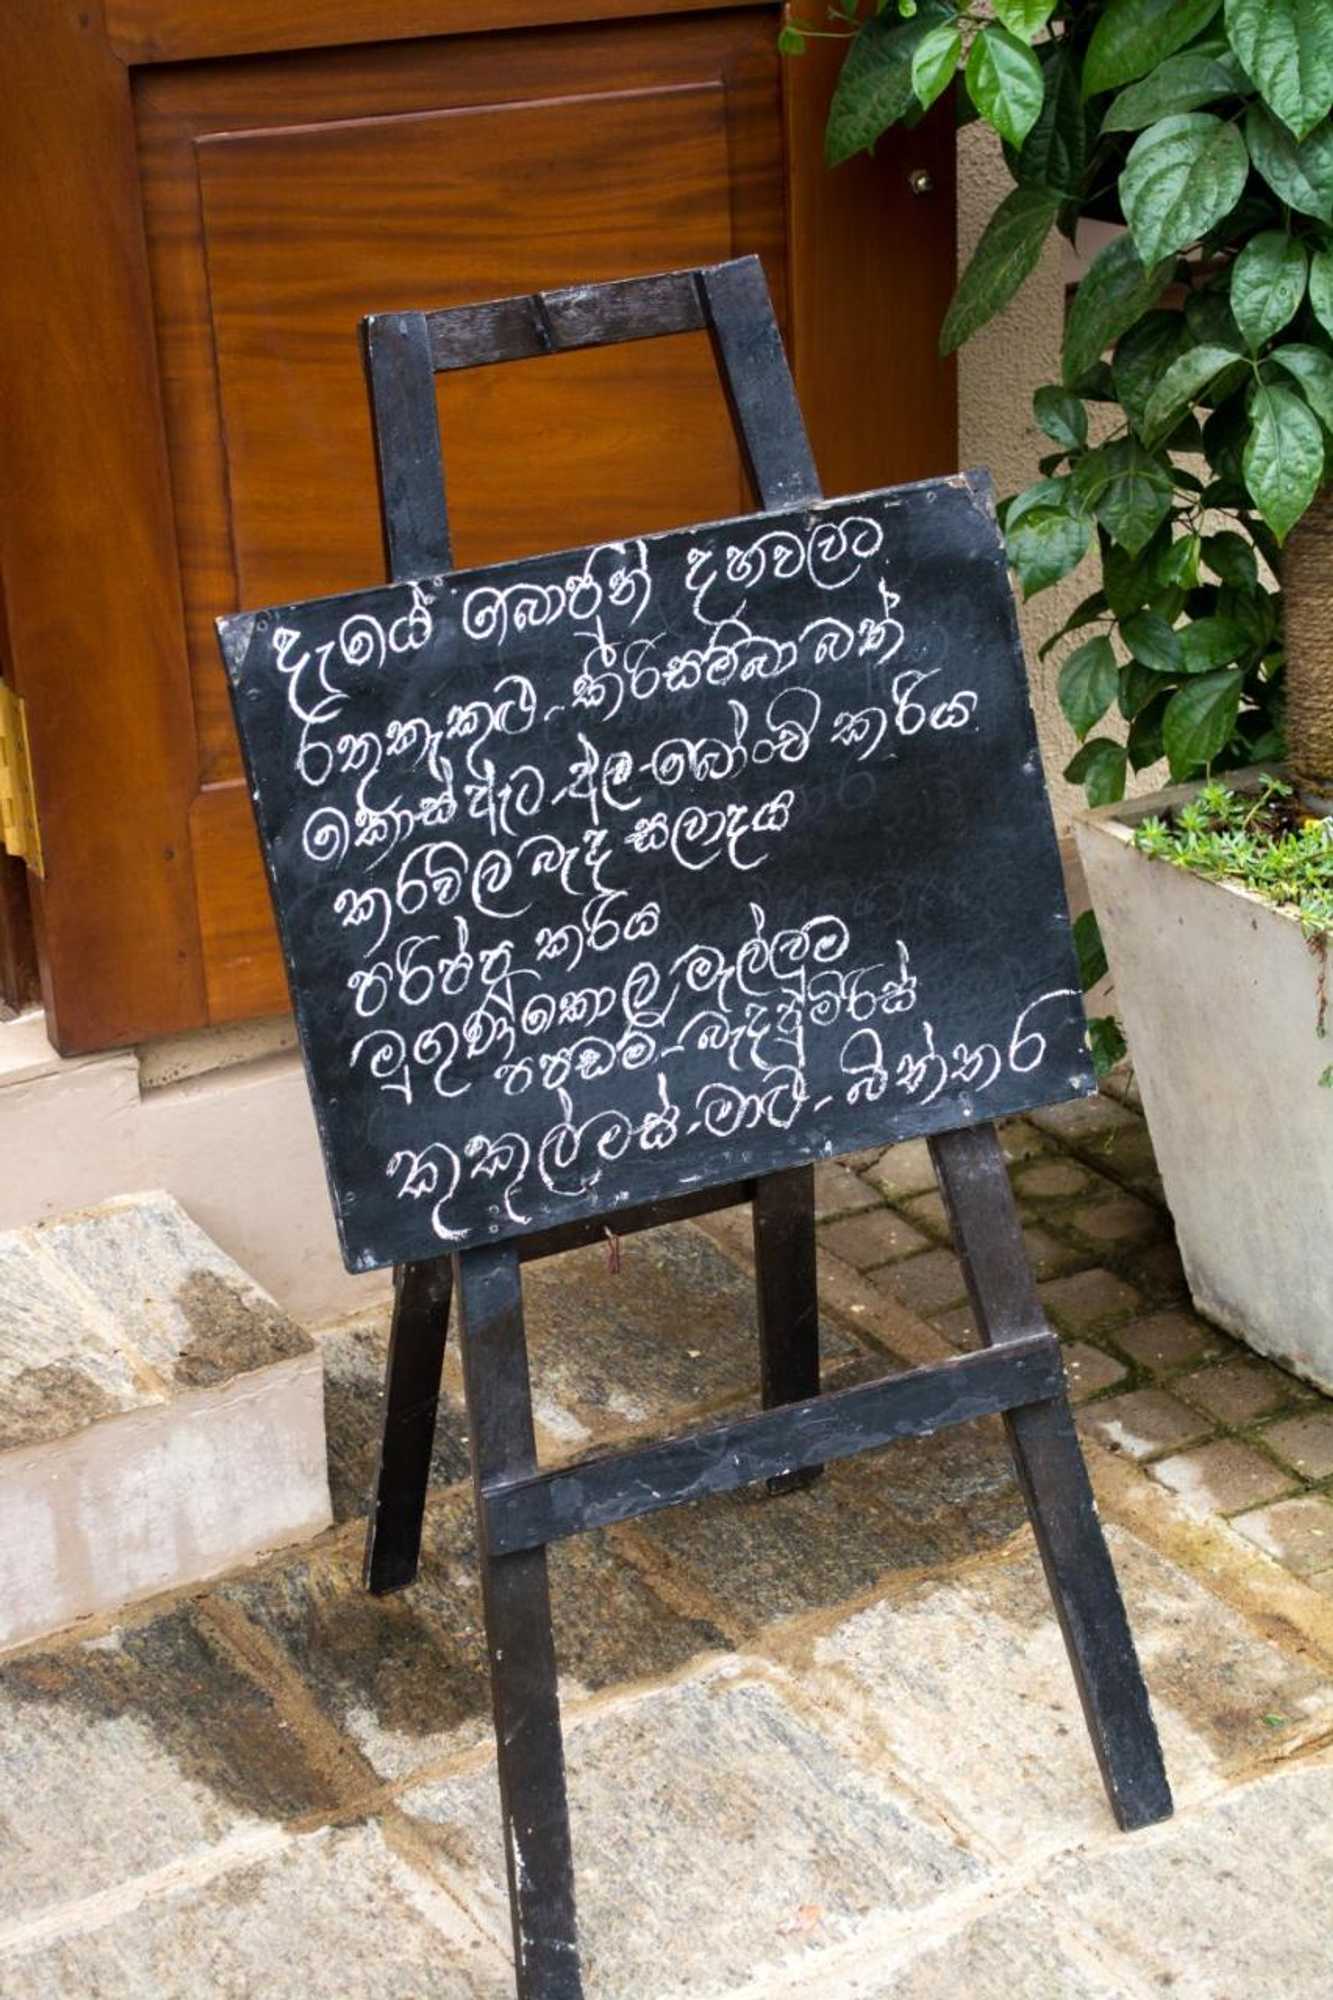 දැයේ බොජුන් දහවලට
රතුකැකුළු - කීරිසම්බා බත්
කොස් ඇට - අල - බෝංචි කරිය
කරවිල බැද සලාදය
පරිප්පු කරිය
මුගුණුකොල මැල්ලුම
පපඩම් - බැදපු මිරිස්
කුකුල් මස් - මාළු - බිත්තර